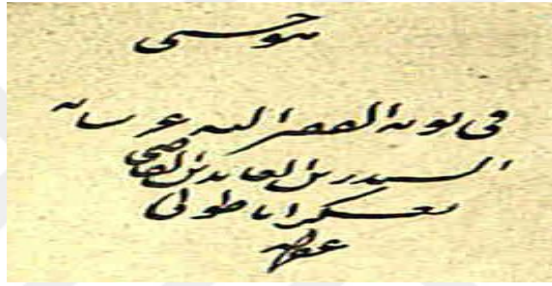 هو حسبى
فى نوبة الفقير اليه عز شانه
السيد زين العابدين القاضى
بعسكر اناطولى
عفى عنه